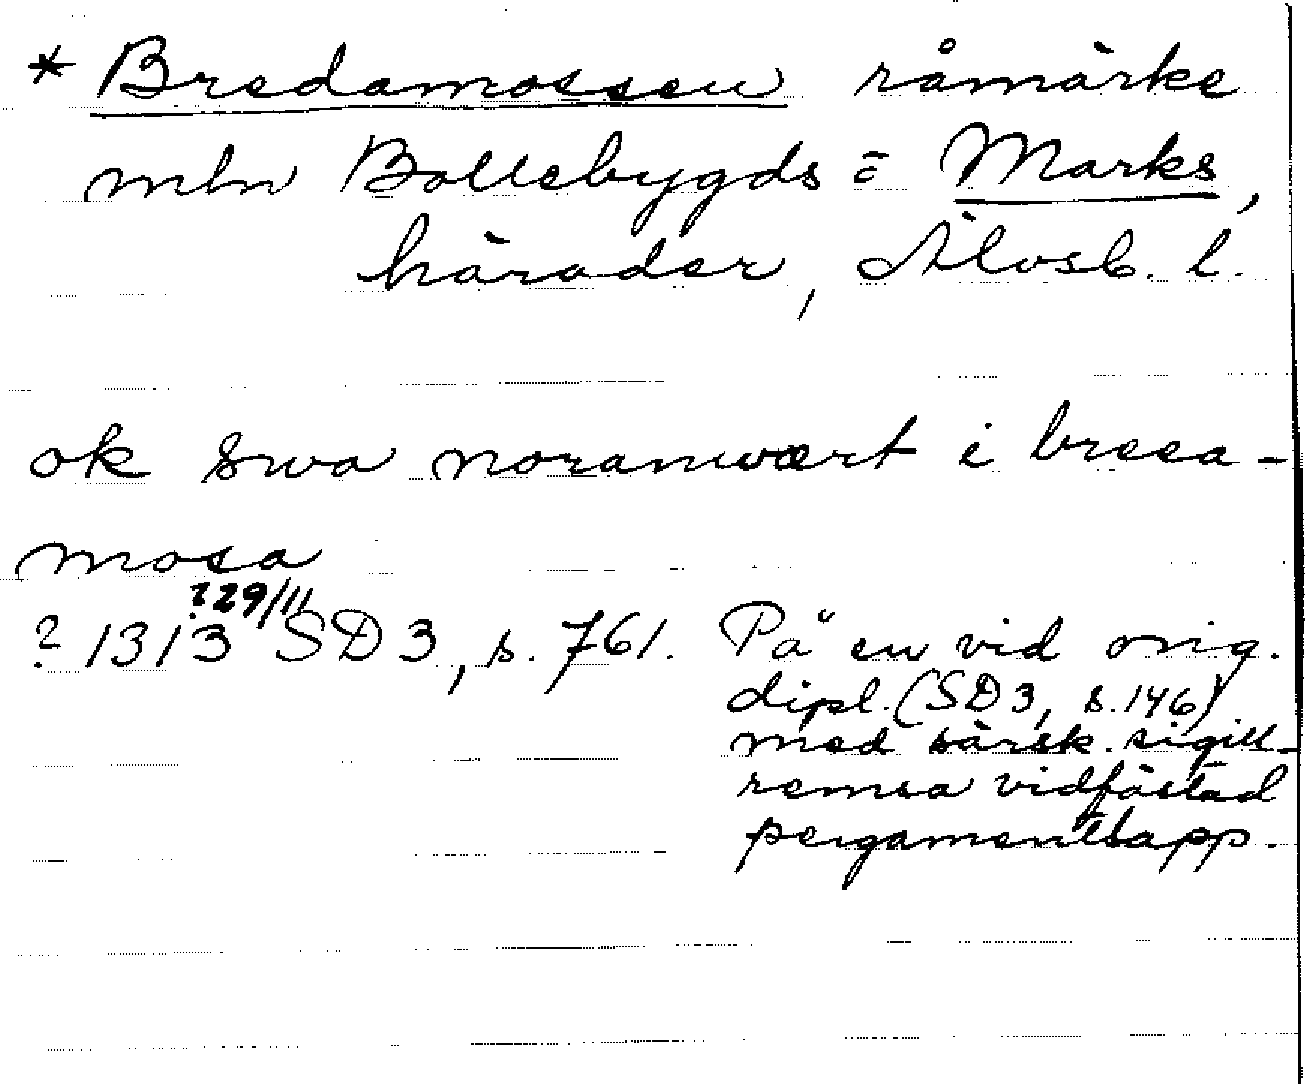 * Bredamossen råmärke
mln Bollebygds = Marks,
härader, Älvsb. l.
ok swa noranwært i breea-
mosa
? 29/11
? 1313 SD 3, s. 761. På en vid orig.
dipl. (SD 3, s. 146)
med särsk. sigill-
remsa vidfästad
pergamentlapp.